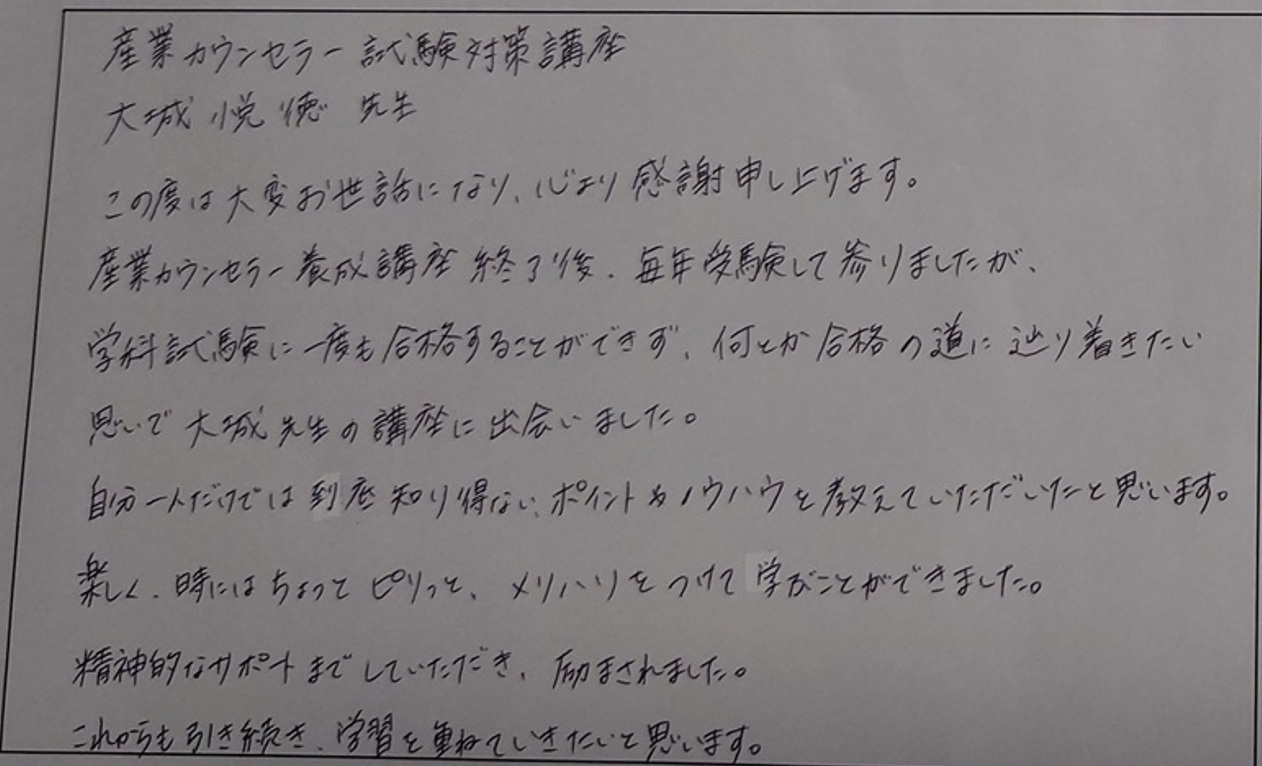 産業カウンセラー試験対策講座
大城 悦徳 先生
この度は大変お世話になり、心より感謝申し上げます。
産業カウンセラー養成講座終了後、毎年受験して参りましたが、
学科試験に一度も合格することができず、何とか合格の道に辿り着きたい
思いで大城先生の講座に出会いました。
自分一人だけでは到底知り得ない、ポイントやノウハウを教えていただいたと思います。
楽しく、時にはちょっとピリっと、メリハリをつけて学ぶことができました。
精神的なサポートまでしていただき、励まされました。
これからも引き続き、学習を重ねていきたいと思います。